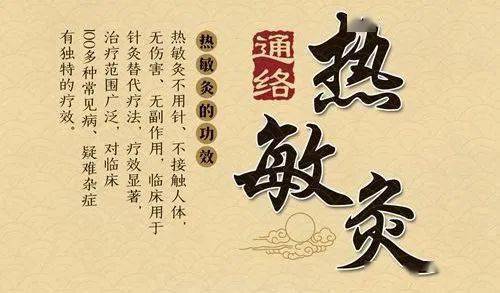 热敏灸
通络
热敏灸的功效
热敏灸不用针、不接触人体，
无伤害、无副作用，临床用于
针灸替代疗法，疗效显著，
治疗范围广泛，对临床
100多种常见病、疑难杂症
有独特的疗效。